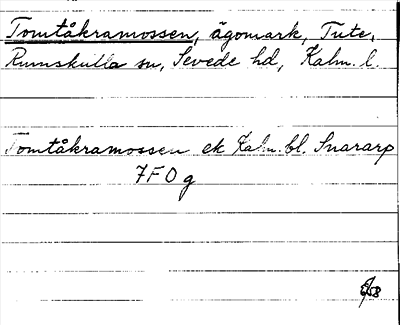 Tomtåkramossen, ägomark, Tute,
Rumskulla sn, Sevede hd, Kalm. l.
Tomtåkramossen ek Kalm. bl. Snararp
7F0g